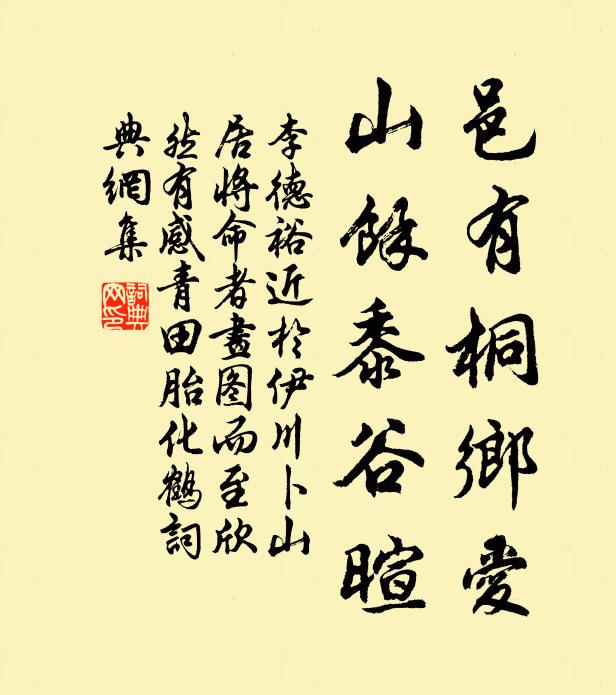 邑有桐鄉愛
山餘黍谷暄
李德裕近於伊川卜山
居將命者畫图而至欣
然有感青田胎化鶴詞
典網集
詞典網印